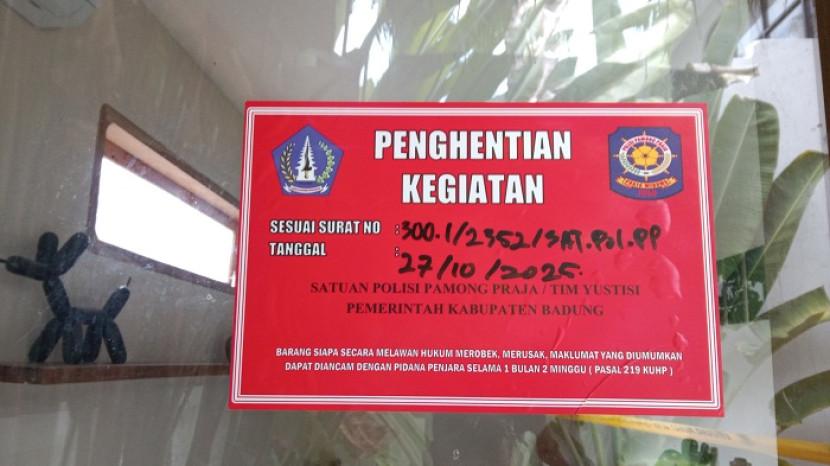 PENGHENTIAN
KEGIATAN
SESUAI SURAT NO : 300.1/2352/SAT.POL.PP
TANGGAL : 27/10/2025
SATUAN POLISI PAMONG PRAJA / TIM YUSTISI
PEMERINTAH KABUPATEN BADUNG
BARANG SIAPA SECARA MELAWAN HUKUM MEROBEK, MERUSAK, MAKLUMAT YANG DIUMUMKAN
DAPAT DIANCAM DENGAN PIDANA PENJARA SELAMA 1 BULAN 2 MINGGU ( PASAL 219 KUHP )